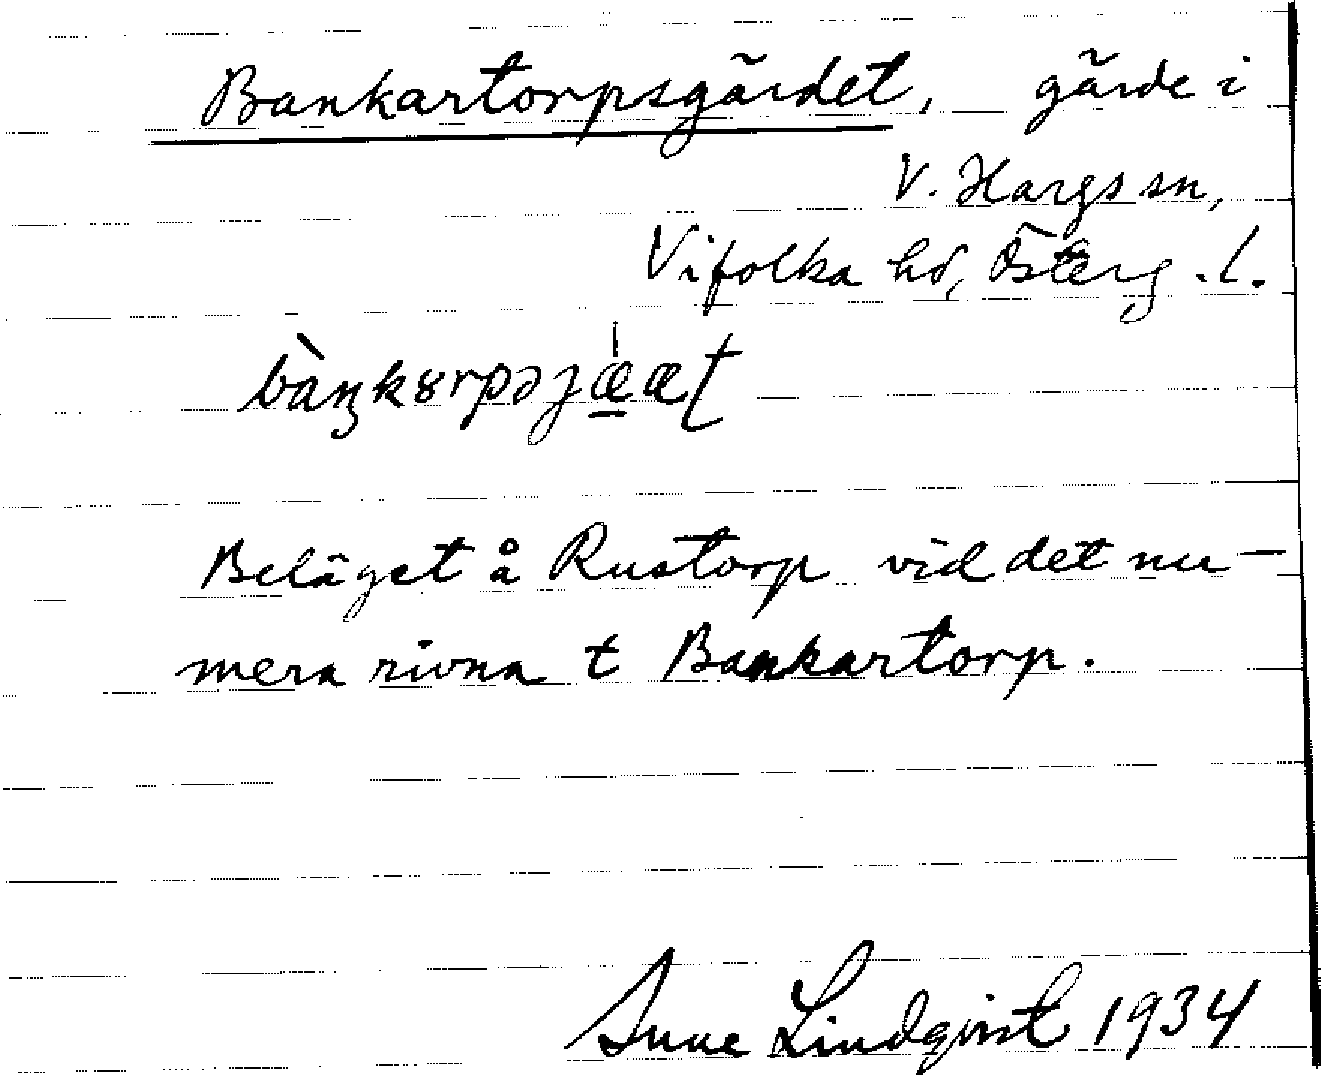 Bankartorpsgärdet, gärde i
V. Hargs sn,
Vifolka hd, Österg. l.
Beläget å Rustorp vid det nu-
mera rivna t Bankartorp.
Sune Lindqvist 1934